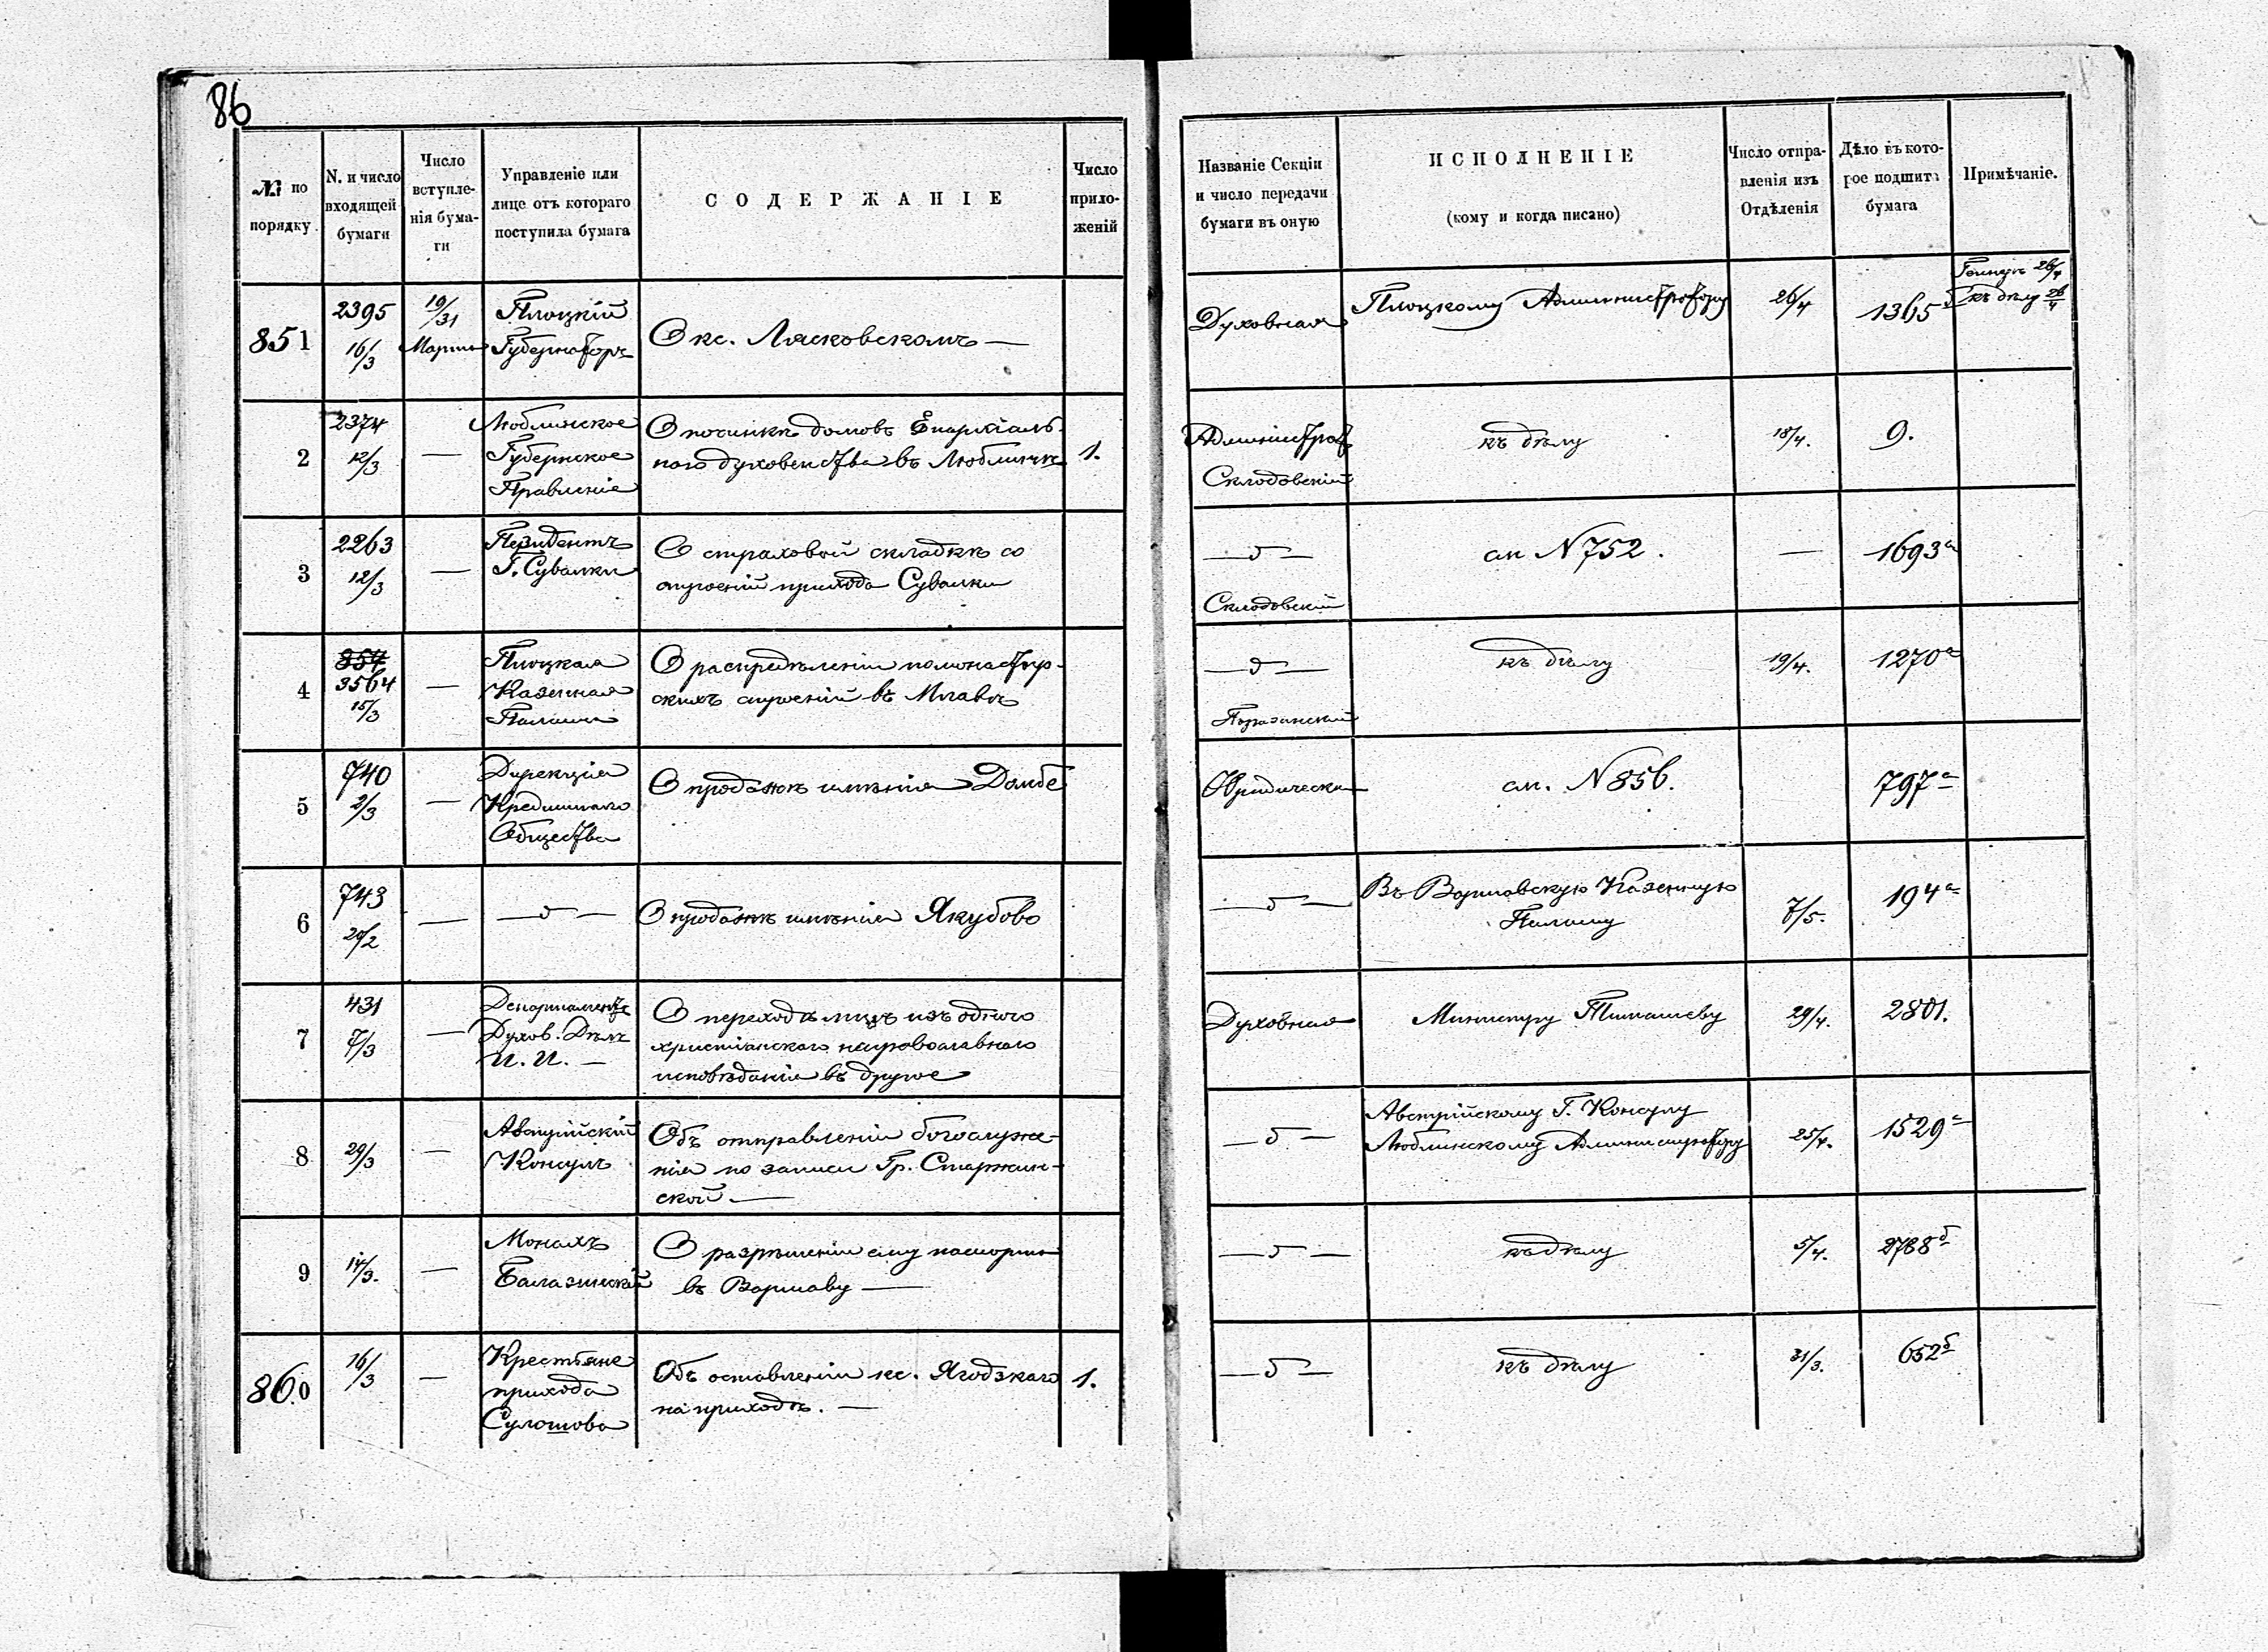 86
№ по порядку
N. и число входящей бумаги
Число вступле-нія бума-ги
Управленіе или лице отъ котораго поступила бумага
СОДЕРЖАНІЕ
Число прило-женій
Названіе Секціи и число передачи бумаги въ оную
ИСПОЛНЕНІЕ
(кому и когда писано)
Число отпра-вленія изъ Отдѣленія
Дѣло въ кото-рое подшита бумага
Примѣчаніе.
851
2395
16/3
19/31
Марта
Плоцкій
Губернаторъ
О кс. Лясковскомъ —
Духовная
Плоцкому Администратору
26/4
1365
26/4
къ дѣлу 26/4
2
2374
12/3
—
Люблинское
Губернское
Правленіе
О починкѣ домовъ Епархіаль-
наго духовенства въ Люблинѣ
1.
Администрат
Склодовскій
къ дѣлу
18/4.
9.
3
2263
12/3
—
Президентъ
Г. Сувалки
О страховой складкѣ со
строеній прихода Сувалки
— " —
Склодовскій
см N 752.
—
1693а
4
3564
15/3
—
Плоцкая
Казенная
Палата
О распредѣленіи помонастыр-
скихъ строеній въ Млавѣ
— " —
къ дѣлу
19/4.
1270а
5
740
2/3
—
Дирекція
Кредитнаго
Общества
О продажѣ имѣнія Домбе
Юридическая
см. N 856.
797а
6
743
20/2
—
— " —
О продажѣ имѣнія Якубово
— " —
Въ Варшавскую Казенную
Палату
7/5.
194а
7
431
7/3
—
Департаментъ
Духов. Дѣлъ
И. И. —
О переходѣ лицъ изъ одного
христіанскаго неправославнаго
исповѣданія въ другое
Духовная
Министру Тимашеву
29/4.
2801.
8
29/3
—
Австрійскій
Консулъ
Объ отправленіи богослуже-
нія по записи Гр. Старжин-
ской. —
— " —
Австрійскому Г. Консулу
Люблинскому Администратору
25/4.
1529а
9
14/3.
—
Монахъ
О разрѣшеніи ему паспорта
въ Варшаву —
— " —
къ дѣлу
5/4.
2788б
860
16/3
—
Крестьяне
прихода
Сулошова
Объ оставленіи кс. Ягодзкаго
на приходѣ. —
1.
— " —
къ дѣлу
31/3.
652б